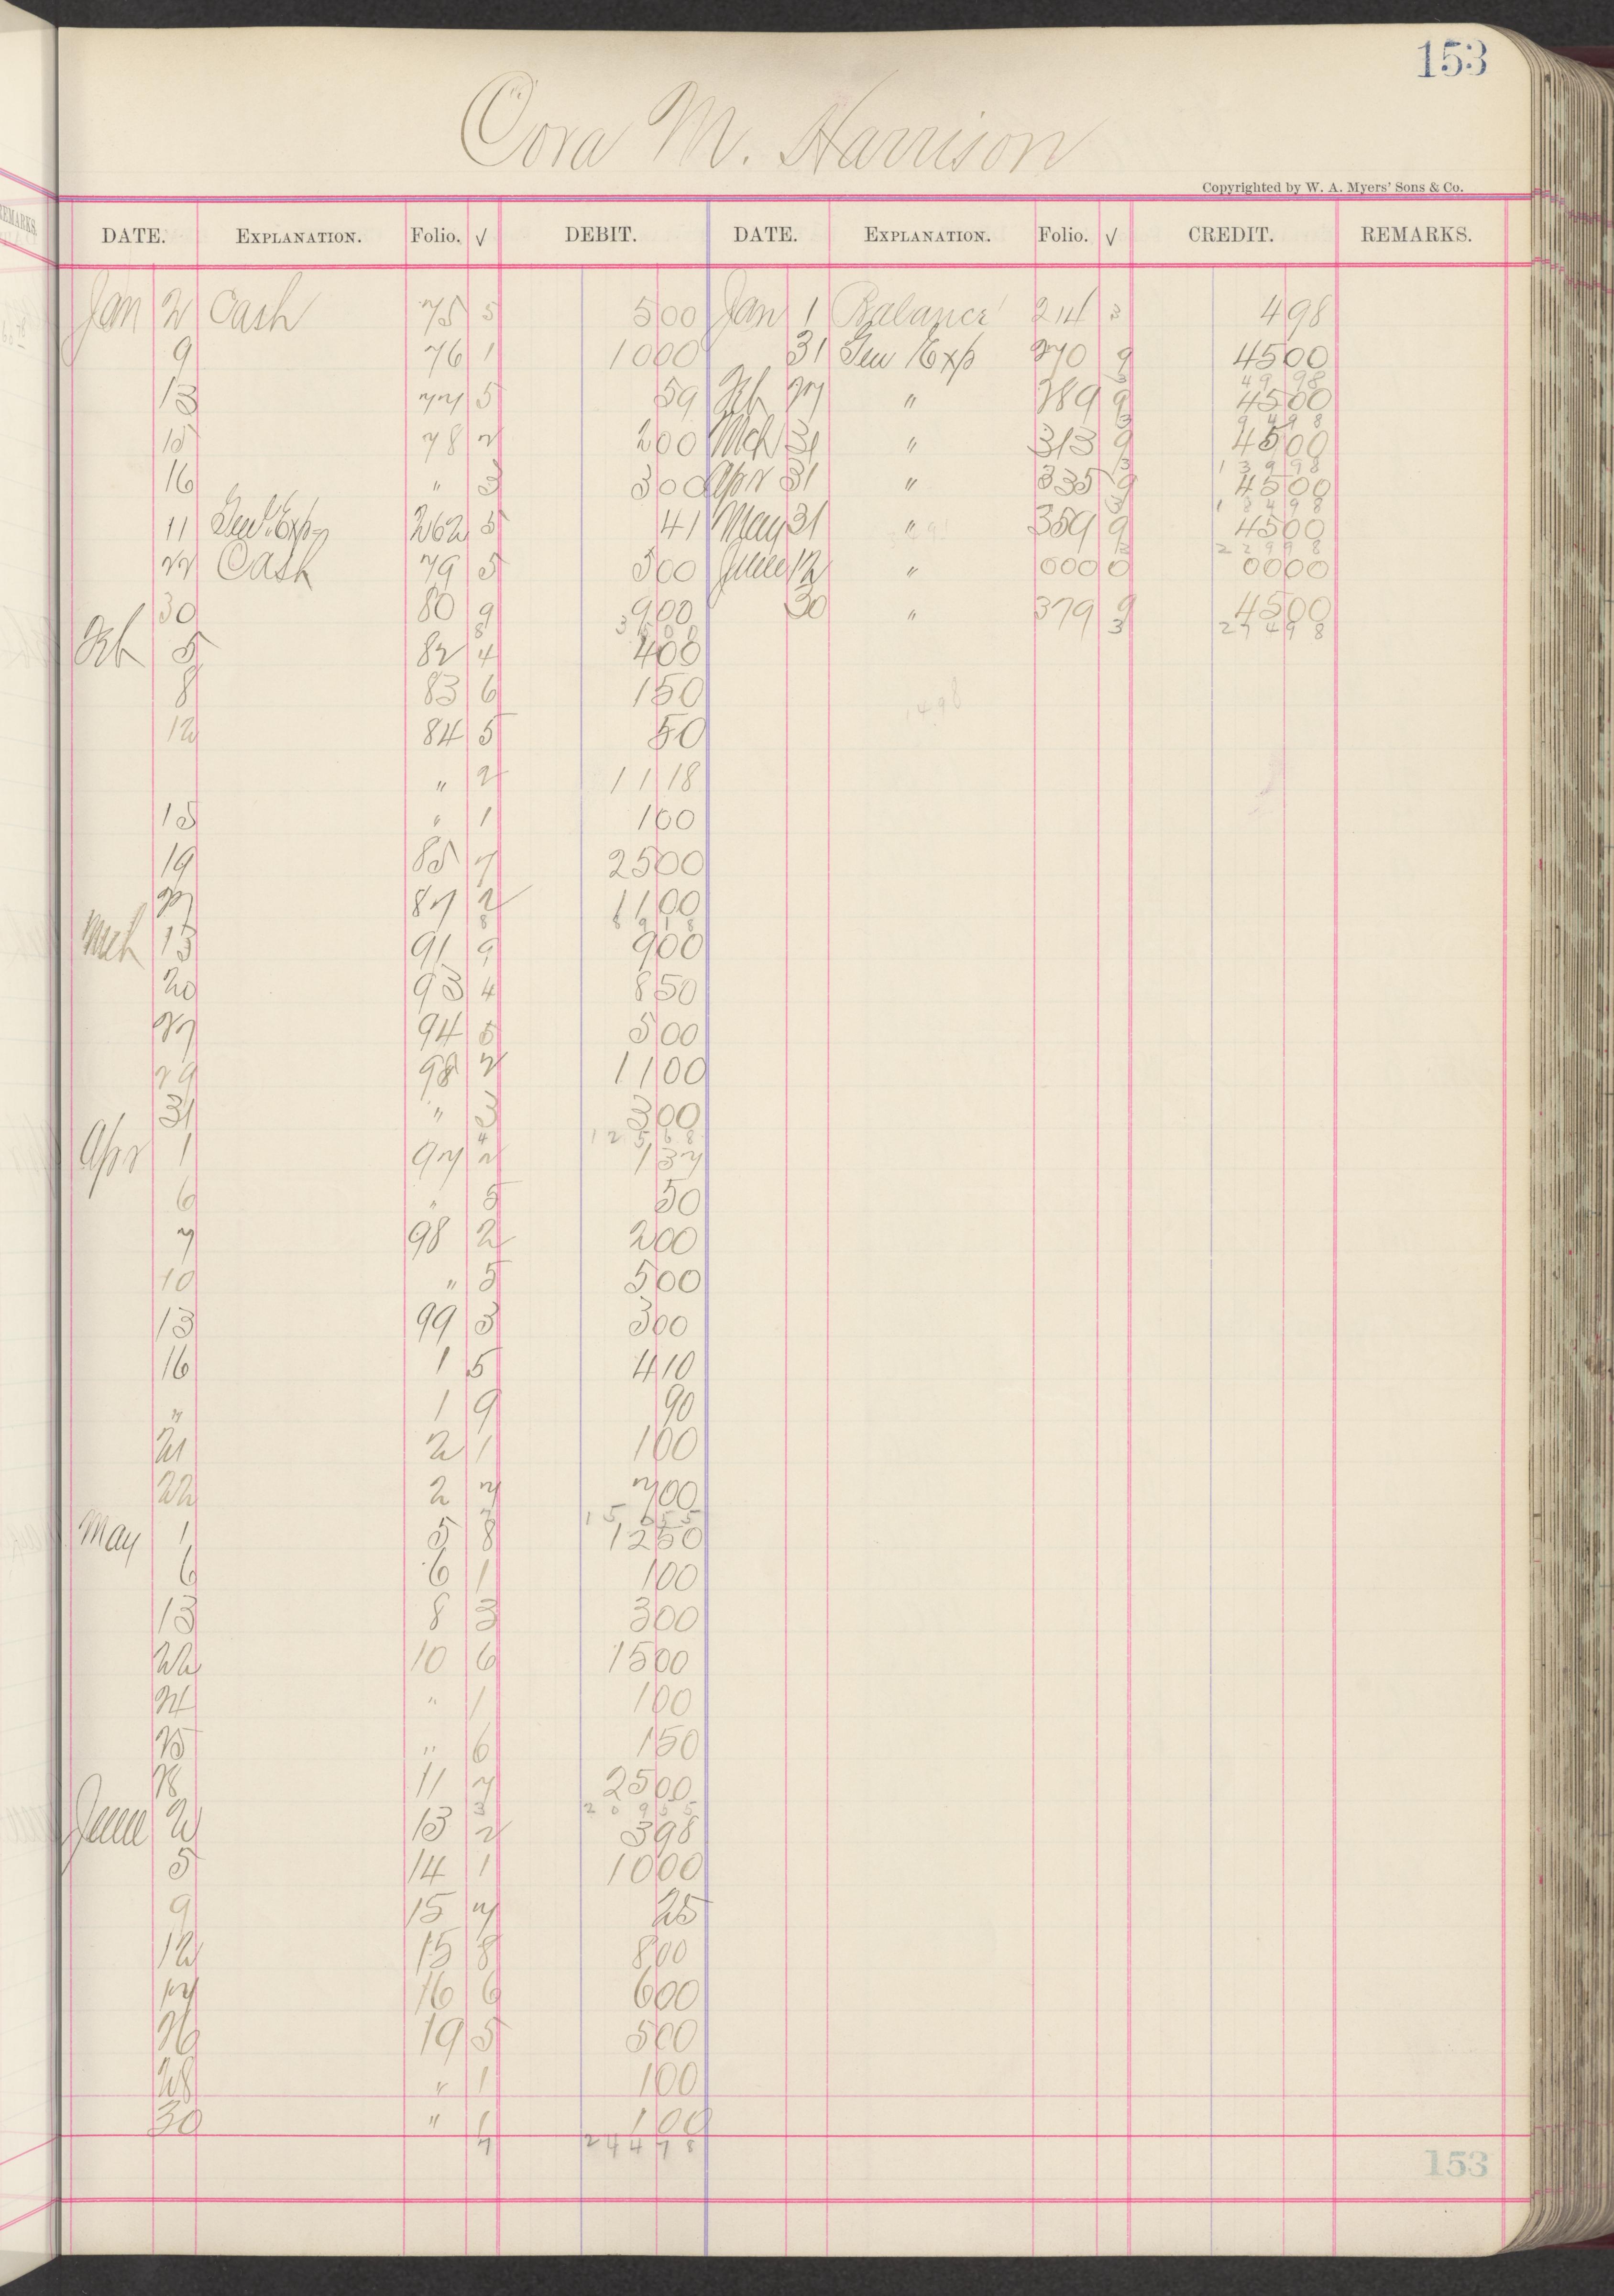 153
Cora M. Harrison
Copyrighted by W. A. Myers' Sons & Co.
DATE. EXPLANATION. Folio. √ DEBIT. DATE. EXPLANATION. Folio. √ CREDIT. REMARKS.
Jan 2 Cash 75 5 500 Jan 1 Balance 214 3 498
9 76 1 1000 31 Gen Exp 270 9 4500
3 49 98
13 77 5 59 Feb 27 " 289 9 4500
3 9 4 9 8
15 78 2 200 Mch 31 " 313 9 4500
3 1 3 9 98
16 " 3 300 Apr 31 " 335 9 4500
3 1 8 4 9 8
11 Genl Exp 262 5 41 May 31 " 359 9 4500
3 2 2 9 9 8
22 Cash 79 5 500 June 12 " 000 0 0000
30 80 9 900 30 " 379 9 4500
8 3 5 0 0 3 2 7 4 9 8
Feb 5 82 4 400
8 83 6 150
1498
12 84 5 50
" 2 11 18
15 " 1 100
19 85 7 2500
27 87 2 1100
8 8 9 1 8
Mch 13 91 9 900
20 93 4 850
27 94 5 500
29 98 2 1100
31 " 3 300
4 1 2 5 6 8
Apr 1 97 2 137
6 " 5 50
7 98 2 200
10 " 5 500
13 99 3 300
16 1 5 410
" 1 9 90
21 2 1 100
22 2 7 700
1 5 0 5 5
May 1 5 8 1250
6 6 1 100
13 8 3 300
22 10 6 1500
24 " 1 100
25 " 6 150
28 11 7 2500
3 2 0 9 5 5
June 2 13 2 398
5 14 1 1000
9 15 7 25
12 15 8 800
17 16 6 600
26 19 5 500
28 " 1 100
30 " 1 100
7 2 4 4 7 8
153